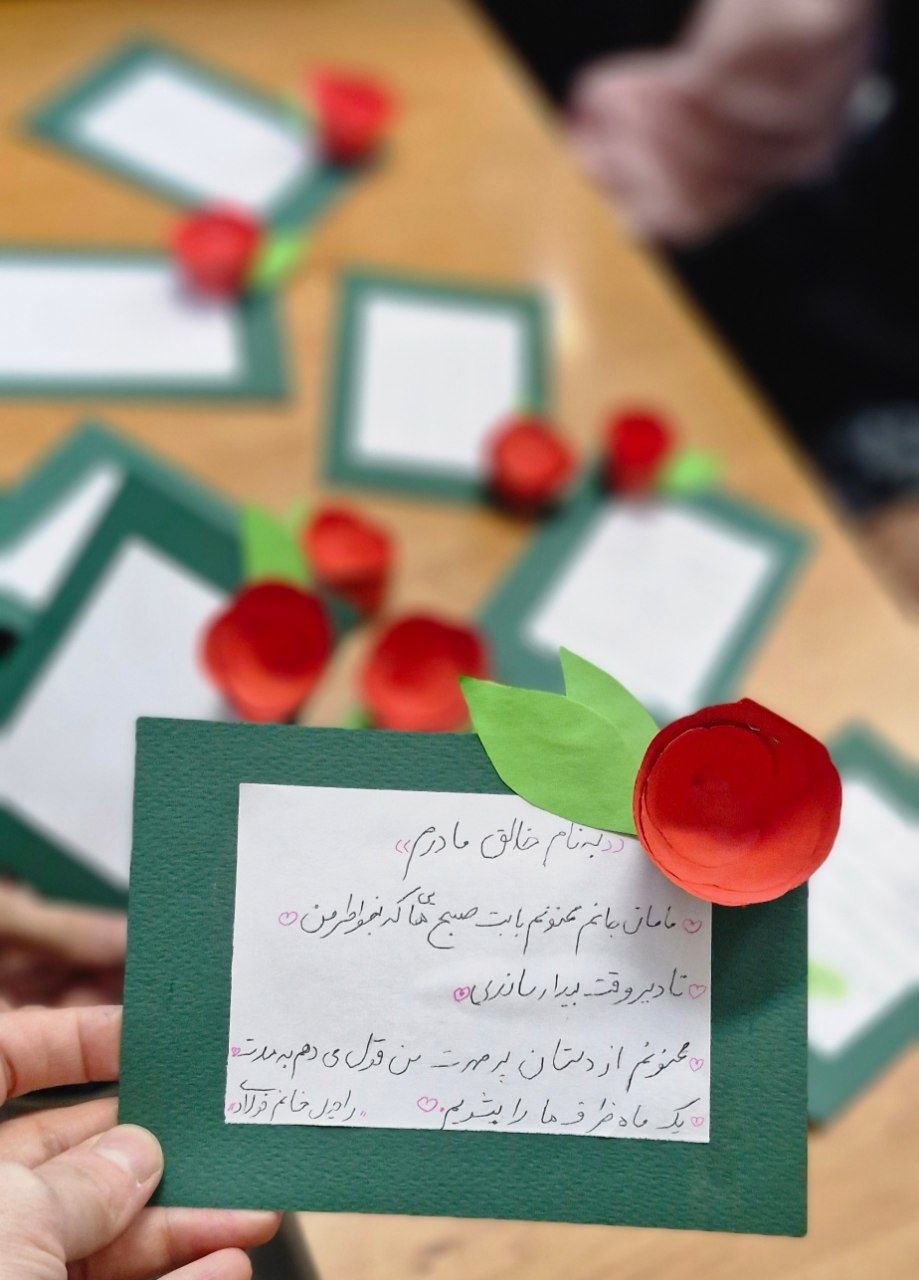 «به نام خالق مادرم»
مامان جانم ممنونم بابت صبح هایی که بخواطر من
تا دیر وقت بیدار ماندی
ممنونم از دستان پر مهرت من قول می دهم به مدت
یک ماه ظرف ها را بشویم.
خانم فولاد